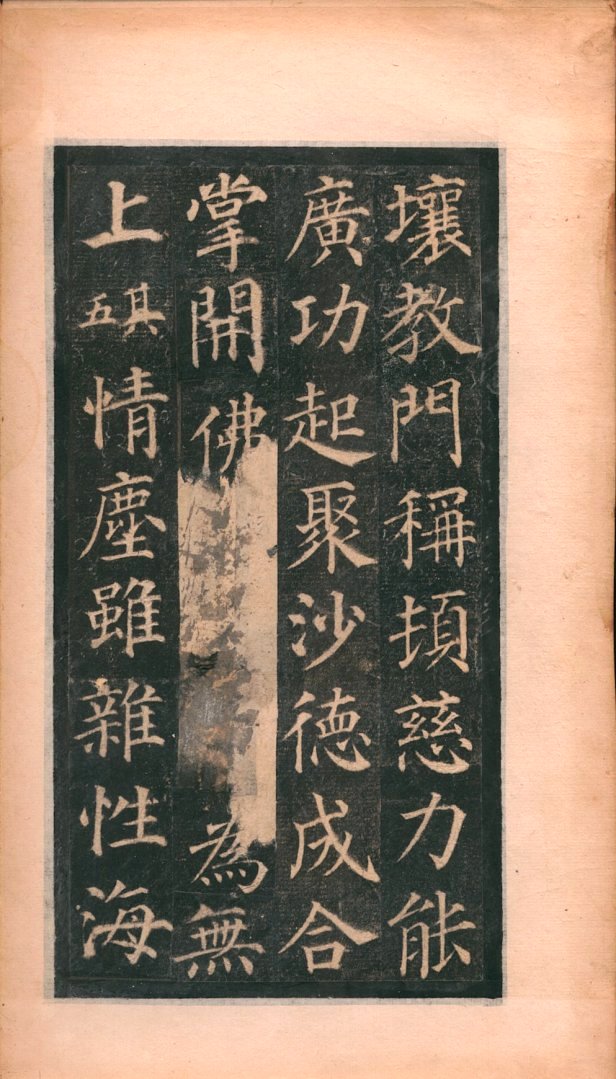 壤教門稱頓慈力能
廣功起聚沙德成合
掌開佛為無
上其五情塵雖雜性海